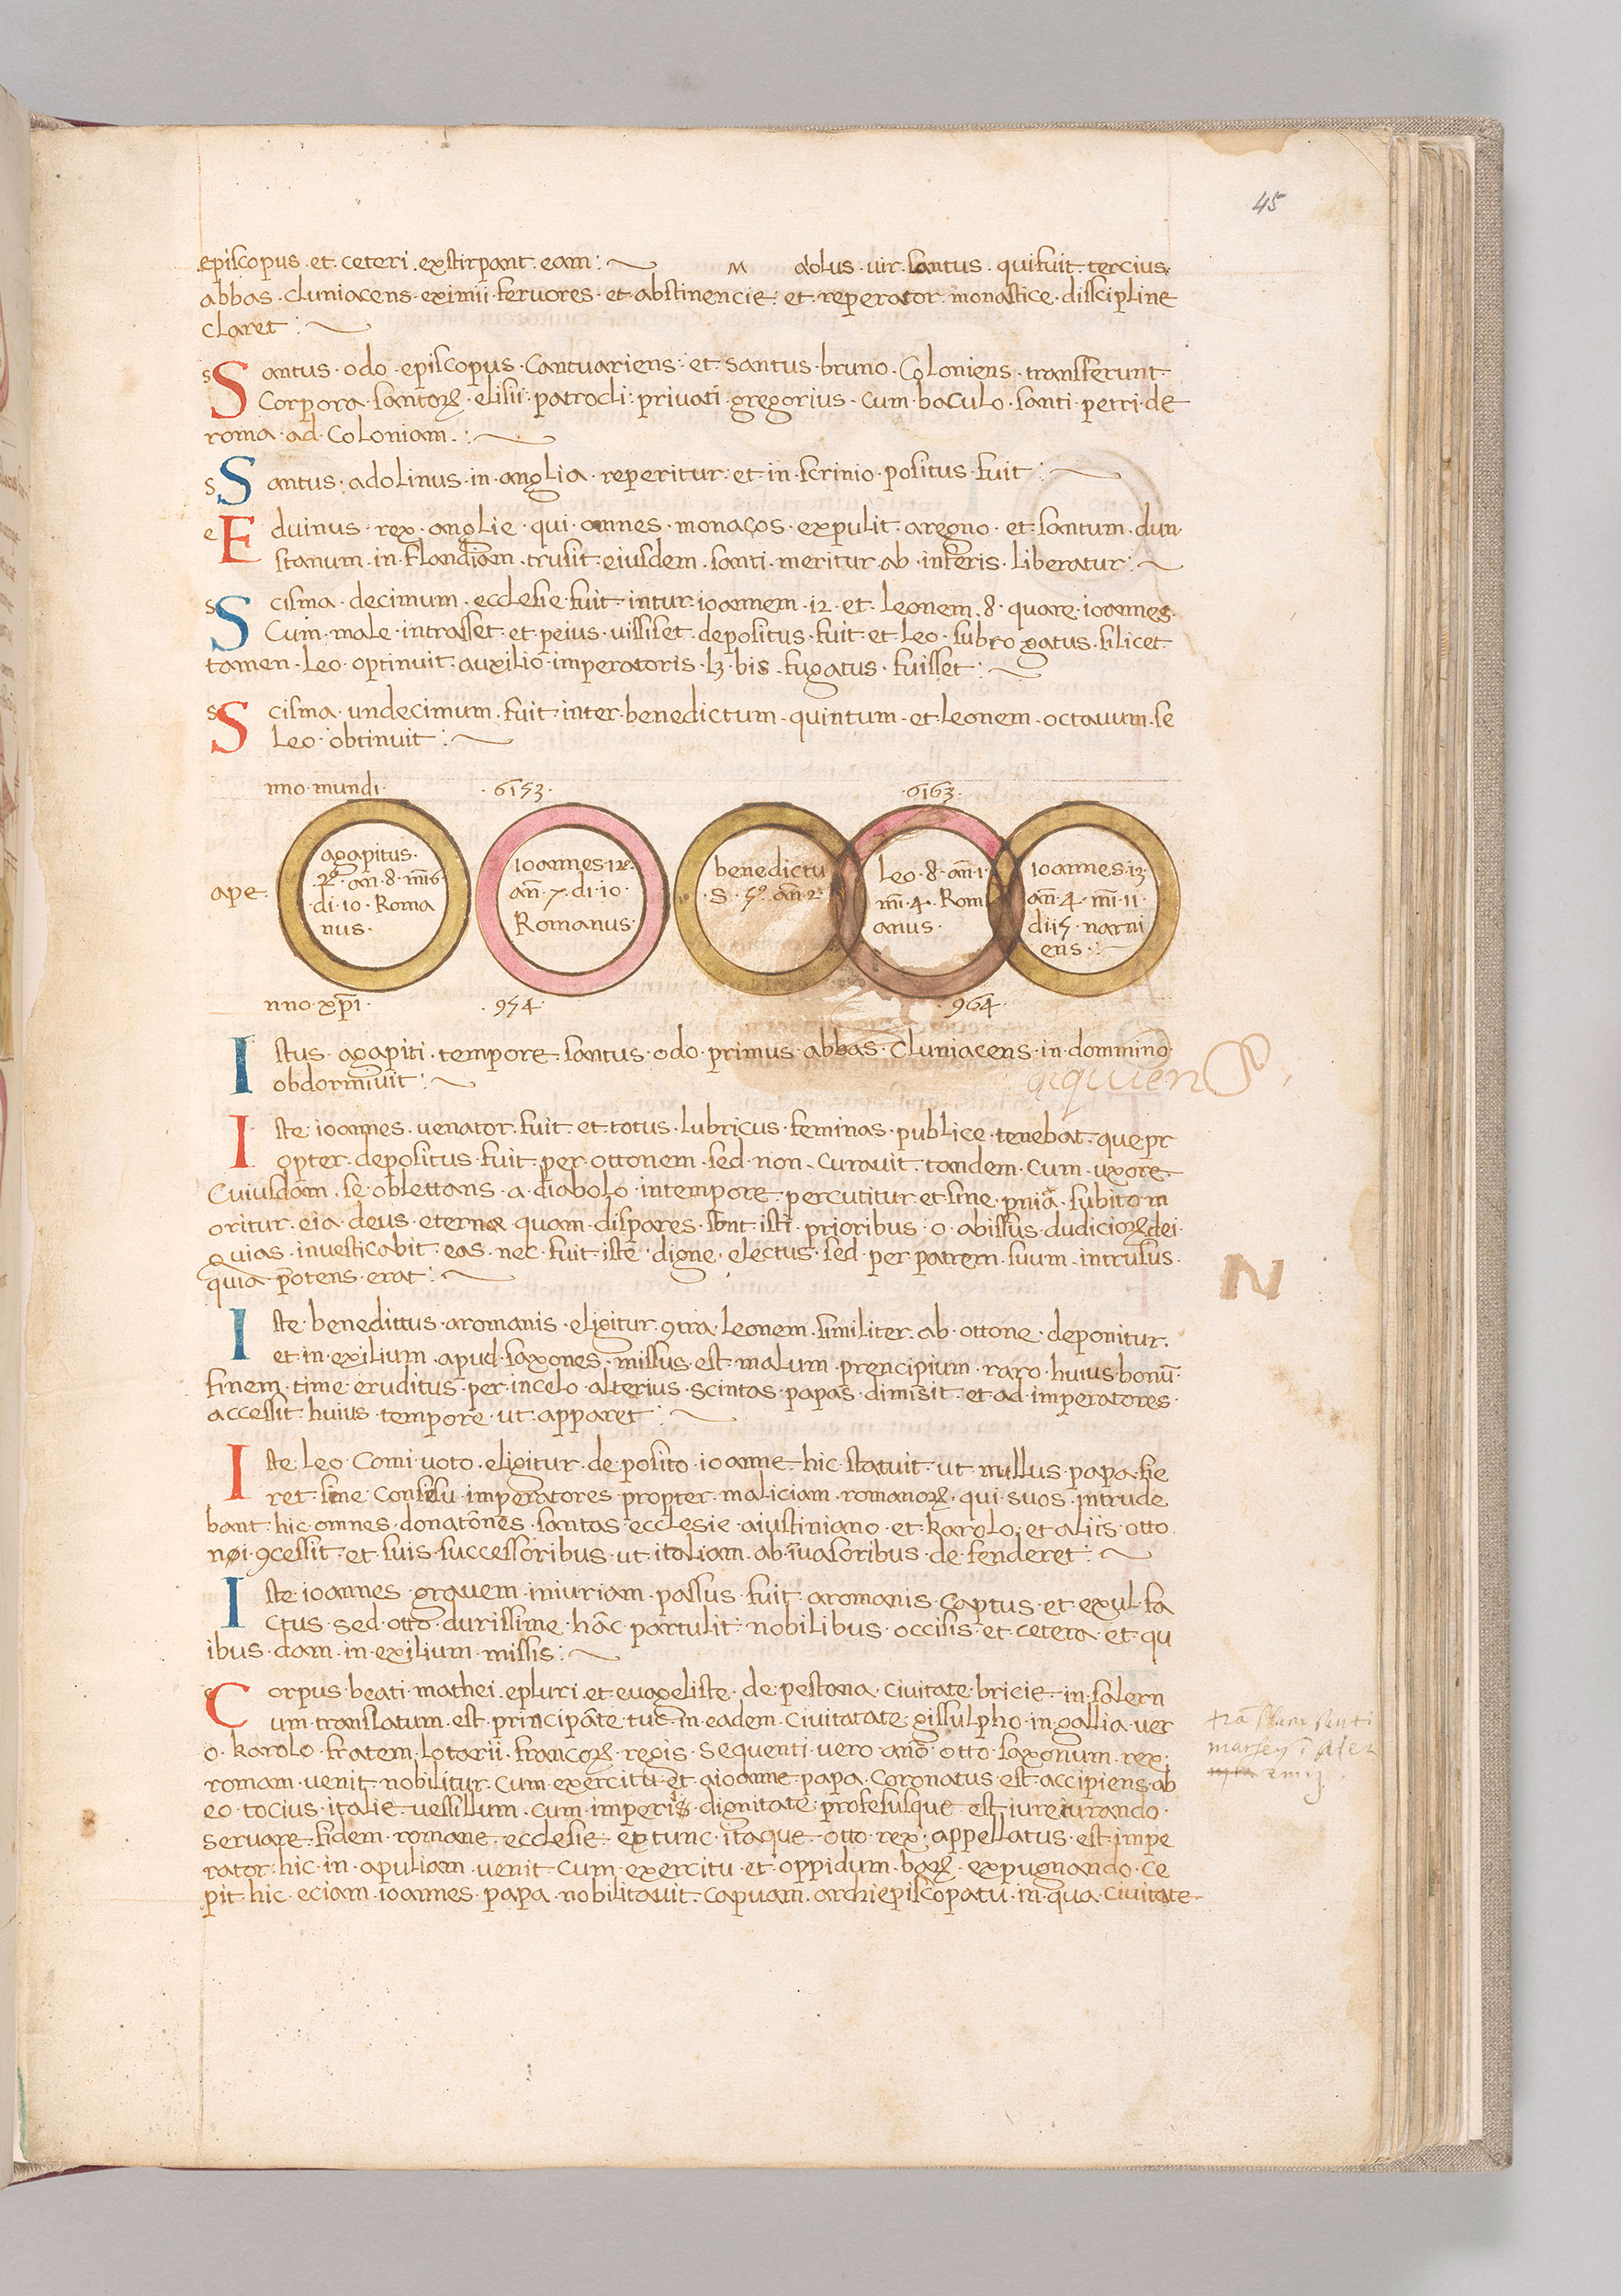 45
episcopus · et · ceteri · exstirpant · eam :
M adolus · uir · santus · qui fuit · tercius ·
abbas · cluniacens · eximii · feruores · et · abstinencie · et · reperator · monastice · disscipline
claret :
s S antus · odo · episcopus · Cantuariens · et · santus · bruno · Coloniens · transferunt ·
Corpora · santoꝝ · elisii · patrocli · priuati · gregorius · cum · baculo · santi · petri · de
roma · ad · Coloniam ·
s S antus · adolinus · in · anglia · reperitur · et · in · scrinio · positus · fuit :
e E duinus · rex · anglie · qui · omnes · monacos · expulit · aregno · et · santum · dun
stanum · in · flandiam · trusit · eiusdem · santi · meritur · ab · inferis · liberatur :
s S cisma · decimum · ecclesie · fuit · intur · ioannem · 12 · et · leonem · 8 · quare · ioannes ·
Cum · male · intrasset · et · peius · uissiset · depositus · fuit · et · leo · subrogatus · silicet
tamen · leo · optinuit · auxilio · imperatoris · lꝫ · bis · fugatus · fuisset :
s S cisma · undecimum · fuit · inter · benedictum · quintum · et · leonem · octauum · se
leo · obtinuit :
nno · mundi · 6153 · 6163 ·
ape ·
agapitus ·
2º · an̄ · 8 · m̄ı6 ·
di · 10 · Roma
nus ·
ioannes · 12 ·
an̄ · 7 · di · 10 ·
Romanus ·
benedictu
s · 5º · an̄ · 2 ·
Leo · 8 · an̄ · 1 ·
m̄ı · 4 · Rom
anus ·
ioannes · 13 ·
an̄ · 4 · m̄ı · 11 ·
di 15 · narni
ens :
nno · xp̄ı · 954 · 964 ·
I stus · agapiti · tempore · santus · odo · primus · abbas · Cluniacens · in · dommino ·
obdormiuit :
I ste · ioannes · uenator · fuit · et · totus · lubricus · feminas · publice · tenebat · que · pr
opter · depositus · fuit · per · ottonem · sed · non · curauit · tandem · cum · uxore ·
Cuiusdam · se · oblettans · a · diabolo · in tempore · percutitur · et · sine · pn̄ia · subito · m
oritur · eia · deus · eterne · quam · dispares · sunt · isti · prioribus · o · abissus · dudicioꝝ dei ·
Quias · inuesticabit · eas · nec · fuit · iste · digne · electus · sed · per · patrem · suum · intrusus ·
quia · potens · erat :
N
I ste · benedittus · aromanis · eligitur · ꝯtra · leonem · similiter · ab · ottone · deponitur ·
et · in · exilium · apud · saxones · missus · est · malum · prencipium · raro · huius · bonū ·
finem · time · eruditus · per · incelo · alterius · scintas · papas · dimisit · et · ad · imperatores ·
accessit · huius · tempore · ut · apparet :
I ste · leo · Comi · uoto · eligitur · deposito · ioanne · hic · statuit · ut · nullus · papa · fie
ret · sine · consensu · imperatores · propter · maliciam · romanoꝝ · qui · suos · intrude
bant · hic · omnes · donatōnes · santas · ecclesie · aiustiniano · et · karolo · et · aliis · otto
noi · ꝯcessit · et · suis · successoribus · ut · italiam · ab · īuasoribus · defenderet :
I ste · ioannes · grauem · iniuriam · passus · fuit · aromanis · captus · et · exul · fa
ctus · sed · otto · durissime · hāc · partulit · nobilibus · occisis · et · cetera · et · qu
ibus · dam · in · exilium · missis :
C orpus · beati · mathei · epluri · et · euageliste · de · pestana · ciuitate · bricie · in · salern
um · translatum · est · principāte · tūc · in · eadem · ciuitatate · gissulpho · in · gallia · ver
o · karolo · fratem · lotarii · francoꝝ · regis · sequenti · vero · ano · otto · saxonum · rex ·
romam · uenit · nobilitur · cum · exercitu · et · aioanne · papa · coronatus · est · accipiens · ab
eo · tocius · italie · uessillum · cum · imperis · dignitate · profesusque · est · iureiurando ·
seruare · fidem · romane · ecclesie · ex tunc · itaque · otto · rex · appellatus · est · impe
rator · hic · in · apuliam · uenit · cum · exercitu · et · oppidum · baꝝ · expugnando · ce
pit · hic · eciam · ioannes · papa · nobilitauit · capuam · archiepiscopatu · in · qua · ciuitate ·